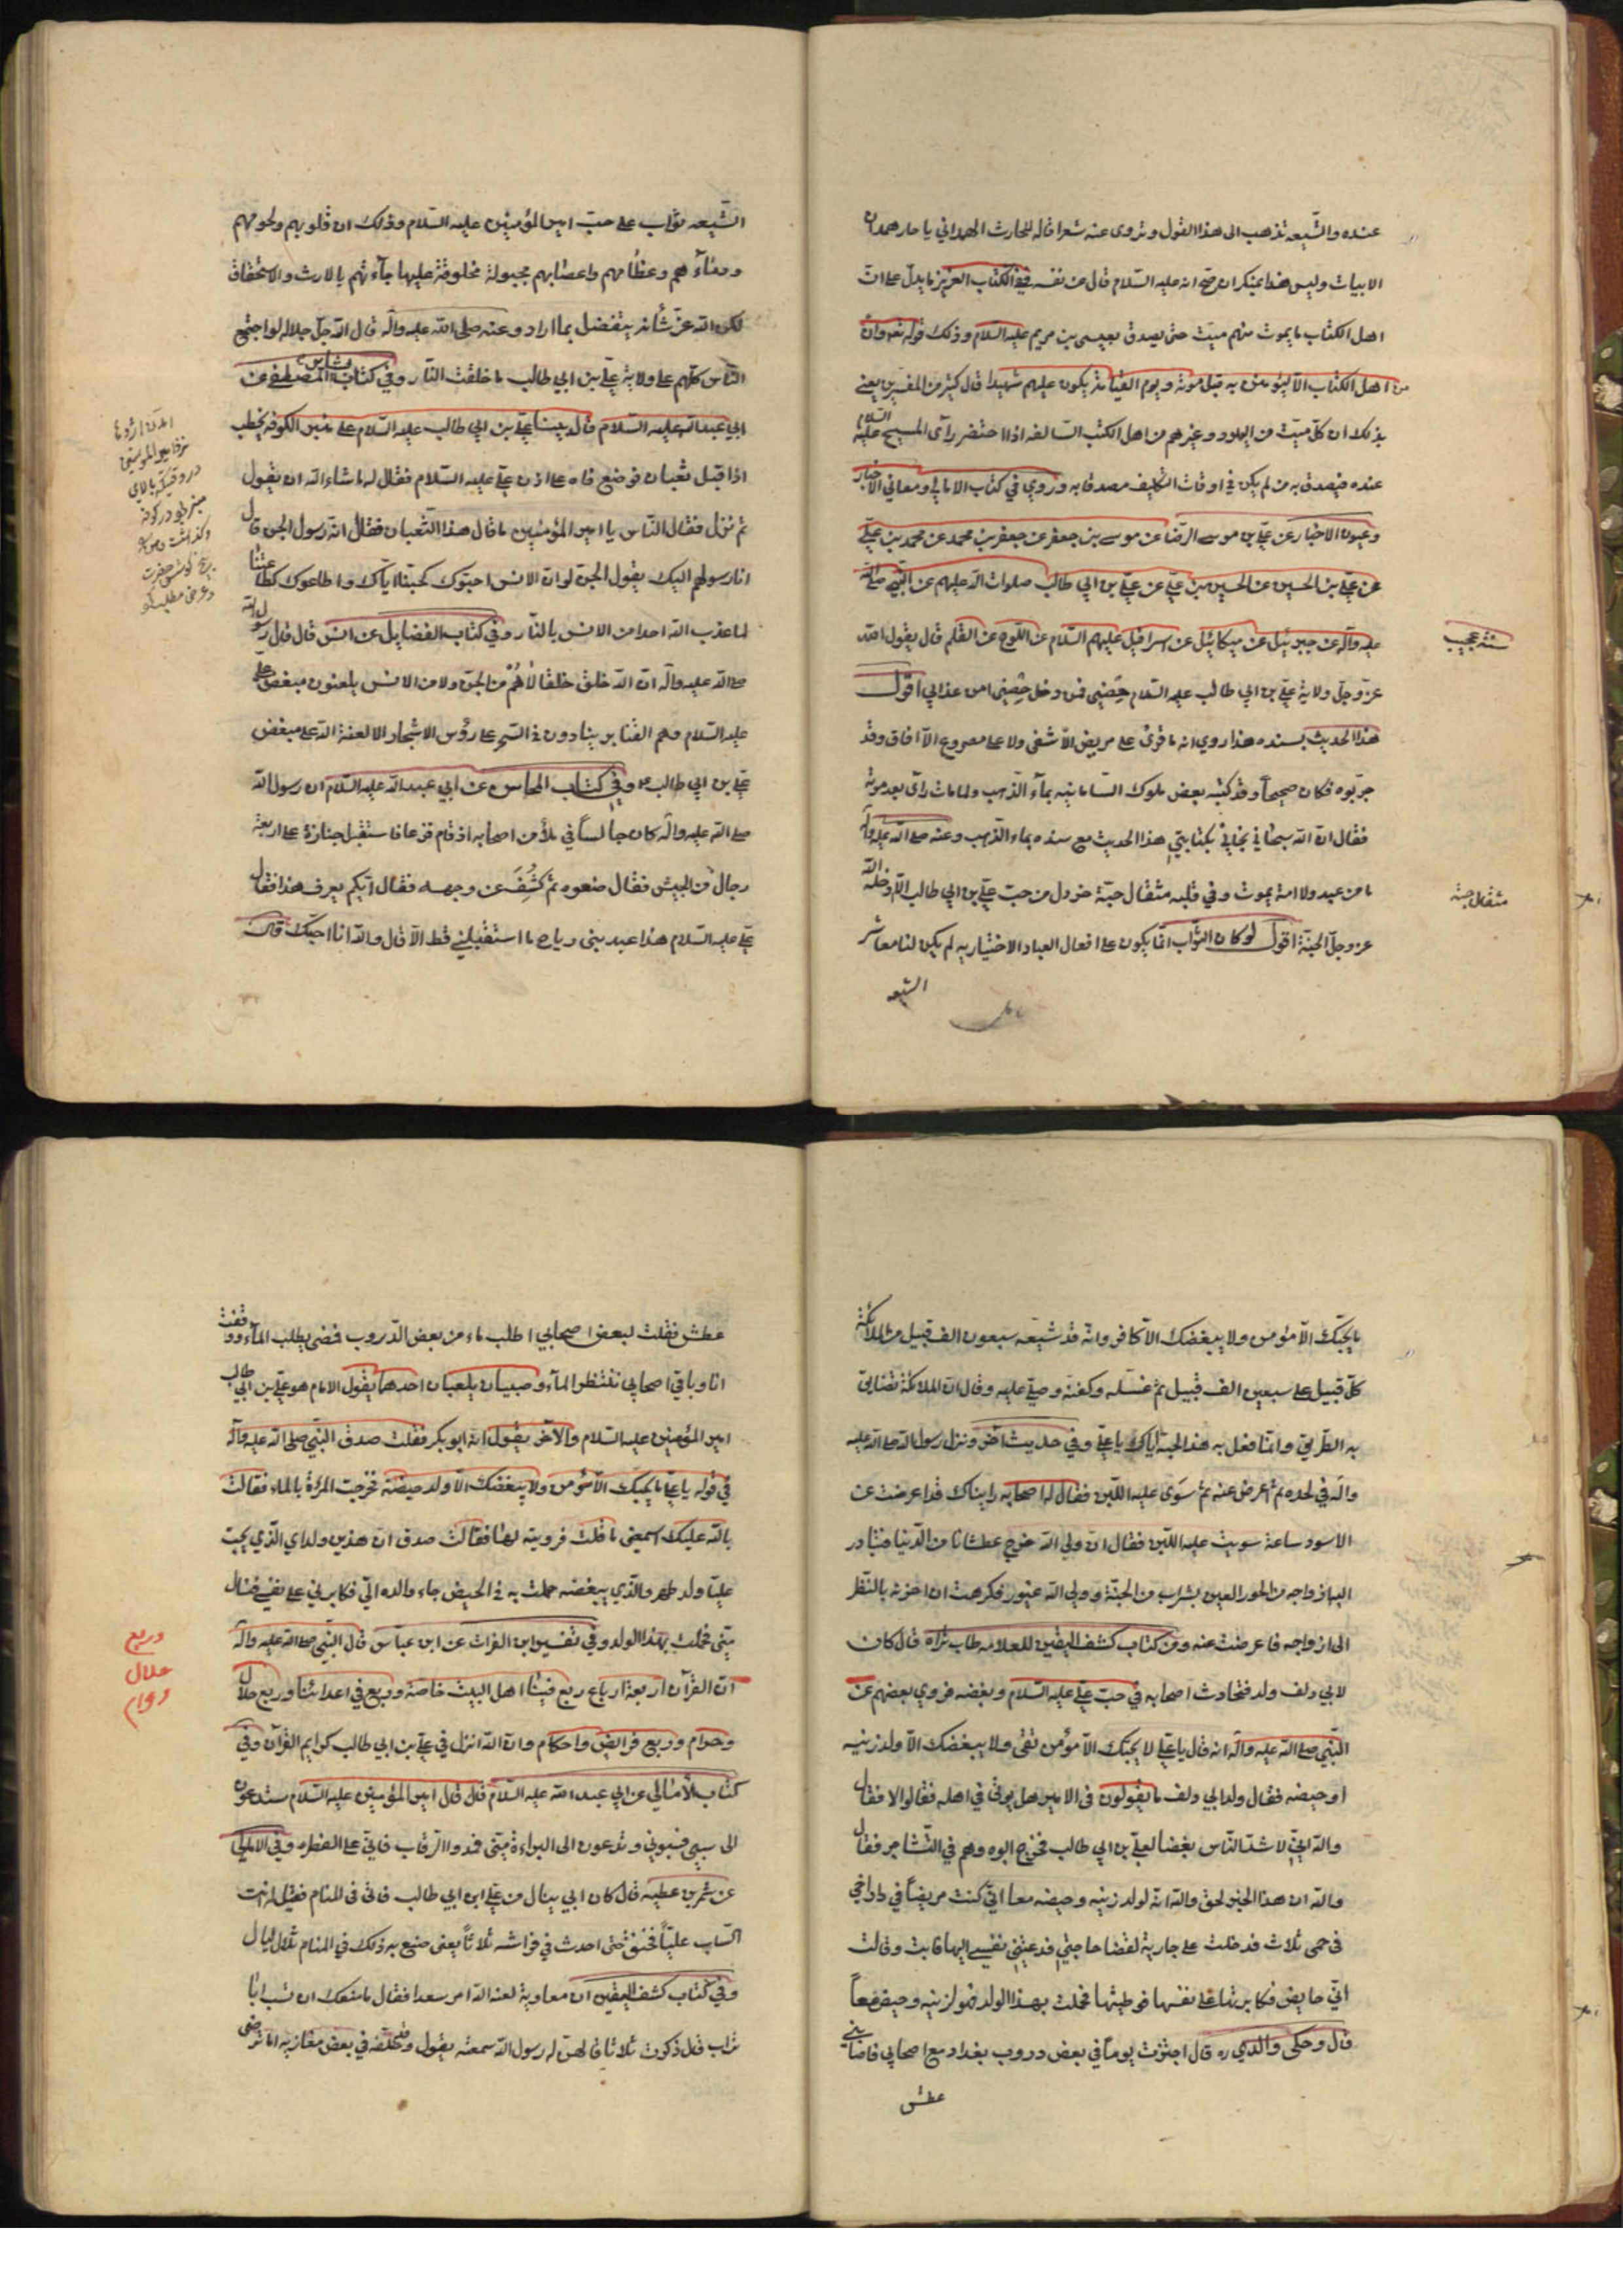 عنده والشّيعه تذهب الى هذا القول وتروى عنه شعرا قاله للحارث الهمداني يا حار همدان
الابيات وليس هذا بمنكر ان صح انه عليه السّلام قال عن نفسه ففي الكتاب العزيز ما يدلّ على انّ
اهل الكتاب ما يموت منهم ميّت حتى يصدق بعيسى بن مريم عليه السّلام وذلك قوله تعه وانْ
من اهل الكتاب الّا ليؤمننّ به قبل موته ويوم القيامة يكون عليهم شهيدا قال كثير من المفسّرين يعني
بذلك ان كلّ ميّت من اليهود وغيرهم من اهل الكتب السّالفه اذا احتضر رآى المسيح عليه السّلام
عنده فيصدق به من لم يكن في اوقات التكليف مصدقا به وروي في كتاب الامالي ومعاني الاخبار
وعيون الاخبار عن عليّ بن موسى الرضا عن موسى بن جعفر عن جعفر بن محمد عن محمد بن عليّ
عن عليّ بن الحسين عن الحسين بن عليّ عن عليّ بن ابي طالب صلوات الله عليهم عن النّبي صلى الله
عليه وآله عن جبرئيل عن ميكائيل عن اسرافيل عليهم السّلام عن اللّوح عن القلم قال يقول الله
عزّ وجلّ ولاية عليّ بن ابي طالب عليه السّلام حِصْني فمن دخل حِصْني امن عذابي اقول
هذا الحديث بسنده هذا روي انه ما قرئ على مريض الّا شفى ولا على مصروع الّا افاق وقد
جرّبوه فكان صحيحاً وقد كتبه بعض ملوك السّامانيه بمآء الذّهب ولما مات رآى بعد موته
فقال انّ الله سبحانه نجاني بكتابتي هذا الحديث مع سنده بماء الذّهب وعنه صلى الله عليه وآله
ما من عبد ولا امة يموت وفي قلبه مثقال حبّة خردل من حبّ عليّ بن ابي طالب الّا ادخله الله
عز وجلّ الجنّة اقول لو كان الثّواب انّما يكون على افعال العباد الاختياريه لم يكن لنا معاشر
الشّيعه
سند عجيب
مثقال حبة
الشّيعه ثواب على حبّ امير المؤمنين عليه السّلام وذلك ان قلوبهم ولحومهم
ودمآءهم وعظامهم واعضابهم مجبولة مخلوقة عليها جآءتهم بالارث والاستحقاق
لكن الله عزّ شأنه يتفضل بما اراد وعنه صلى الله عليه وآله قال الله جلّ جلاله لو اجتمع
النّاس كلّهم على ولاية عليّ بن ابي طالب ما خلقت النّار وفي كتاب بشائر المصطفى عن
ابي عبد الله عليه السّلام قال بينا عليّ بن ابي طالب عليه السّلام على منبر الكوفه يخطب
اذا قبل ثعبان فوضع فاه على اذن عليّ عليه السّلام فقال له ما شاء الله ان يقول
ثم نزل فقال النّاس يا امير المؤمنين ما قال هذا الثّعبان فقال انّه رسول الجن قال
انا رسولهم اليك يقول الجنّ لو انّ الانس احبّوك كحبّنا ايّاك واطاعوك كطاعتنا
لما عذب الله احدا من الانس بالنّار وفي كتاب الفضايل عن انس قال قال رسول الله
صلى الله عليه وآله انّ الله خلق خلقا لاهُمْ من الجنّ ولا من الانس يلعنون مبغض عليّ
عليه السّلام وهم القنابر ينادون في السّحر على رؤس الاشجار الا لعنة الله على مبغض
عليّ بن ابي طالب ع وفي كتاب المحاسن عن ابي عبد الله عليه السّلام ان رسول الله
صلى الله عليه وآله كان جالساً في ملأ من اصحابه اذ قام فزعا فاستقبل جنازة على اربعة
رجال من الحبش فقال ضعوه ثم كَشَفَ عن وجهه فقال ايّكم يعرف هذا فقال
عليّ عليه السّلام هذا عبد بني رياح ما استقبلني قط الّا قال والله انا احبّك قال
ما يحبّك الّا مؤمن ولا يبغضك الّا كافر وانّه قد شيّعه سبعون الف قبيل من الملائكة
كلّ قبيل على سبعين الف قبيل ثم غسله وكفنه وصلّى عليه وقال انّ الملائكة تضايق
به الطّريق وانّما فعل به هذا لحبّه ايّاك يا عليّ وفي حديث آخر ونزل رسول الله صلى الله عليه
وآله في لحده ثم اعرض عنه ثم سوّى عليه اللّبن فقال له اصحابه رايناك قد اعرضت عن
الاسود ساعة سويت عليه اللّبن فقال انّ ولي الله خرج عطشانا من الدّنيا فتبادر
اليه ازواجه من الحور العين بشراب من الجنّة وولي الله غيور فكرهت ان احزنه بالنّظر
الى ازواجه فاعرضت عنه ومن كتاب كشف اليقين للعلامه طاب ثراه قال كان
لابي دلف ولد فتحادث اصحابه في حبّ عليّ عليه السّلام وبغضه فروى بعضهم عن
النّبي صلى الله عليه وآله انه قال يا عليّ لا يحبّك الّا مؤمن تقى ولا يبغضك الّا ولد زنيه
او حيضه فقال ولد ابي دلف ما يقولون في الامير هل يؤتى في اهله فقالوا لا فقال
والله انّي لاشدّ النّاس بغضا لعليّ بن ابي طالب فخرج ابوه وهم في التّشاجر فقال
والله ان هذا الخبر لحق والله انّه لولد زنيه وحيضه معا انّي كنت مريضاً في دار اخي
في حمى ثلاث فدخلت على جارية لقضا حاجتي فدعتني نفسي اليها فابت وقالت
انّي حايض فكابرتها على نفسها فوطيتها فحملت بهذا الولد فهو لزنيه وحيضه معاً
قال وحكى والدي ره قال اجتزت يوماً في بعض دروب بغداد مع اصحابي فاصابني
عطش
عطش فقلت لبعض اصحابي اطلب ماء من بعض الدّروب فمضى يطلب المآء ووقفت
انا وباقي اصحابي ننتظر المآء وصبيان يلعبان احدهما يقول الامام هو عليّ بن ابي طالب
امير المؤمنين عليه السّلام والآخر يقول انّه ابو بكر فقلت صدق النّبي صلى الله عليه وآله
في قوله يا عليّ ما يحبّك الّا مؤمن ولا يبغضك الّا ولد حيضة فخرجت المرأة بالماء فقالت
بالله عليك اسمعني ما قلت فرويته لها فقالت صدق انّ هذين ولداي الّذي يحبّ
عليّا ولد طهر والّذي يبغضه حملت به في الحيض جاء والده اليّ فكابرني على نفسي فنال
منّي فحملت بهذا الولد وفي تفسير ابن الفرات عن ابن عبّاس قال النّبي صلى الله عليه وآله
انّ القرآن اربعة ارباع ربع فينا اهل البيت خاصة وربع في اعدائنا وربع حلال
وحرام وربع فرائض واحكام وانّ الله انزل في عليّ بن ابي طالب كرايم القرآن وفي
كتاب الامالي عن ابي عبد الله عليه السّلام قال قال امير المؤمنين عليه السّلام ستدعون
الى سبّي فسبوني وتدعون الى البراءة منّي فمدوا الرّقاب فانّي على الفطره وفي الامالي
عن شمر بن عطيه قال كان ابي ينال من عليّ ابن ابي طالب فاتى في المنام فقيل له انت
السّاب عليّاً فخنق حتى احدث في فراشه ثلاثاً يعني صنع به ذلك في المنام ثلاث ليال
وفي كتاب كشف اليقين ان معاوية لعنه الله امر سعدا فقال ما منعك ان تسب ابا
تراب قال ذكرت ثلاثا قالهن له رسول الله سمعته يقول وخلّفه في بعض مغازيه اما ترضى
وربع
حلال
وحرام